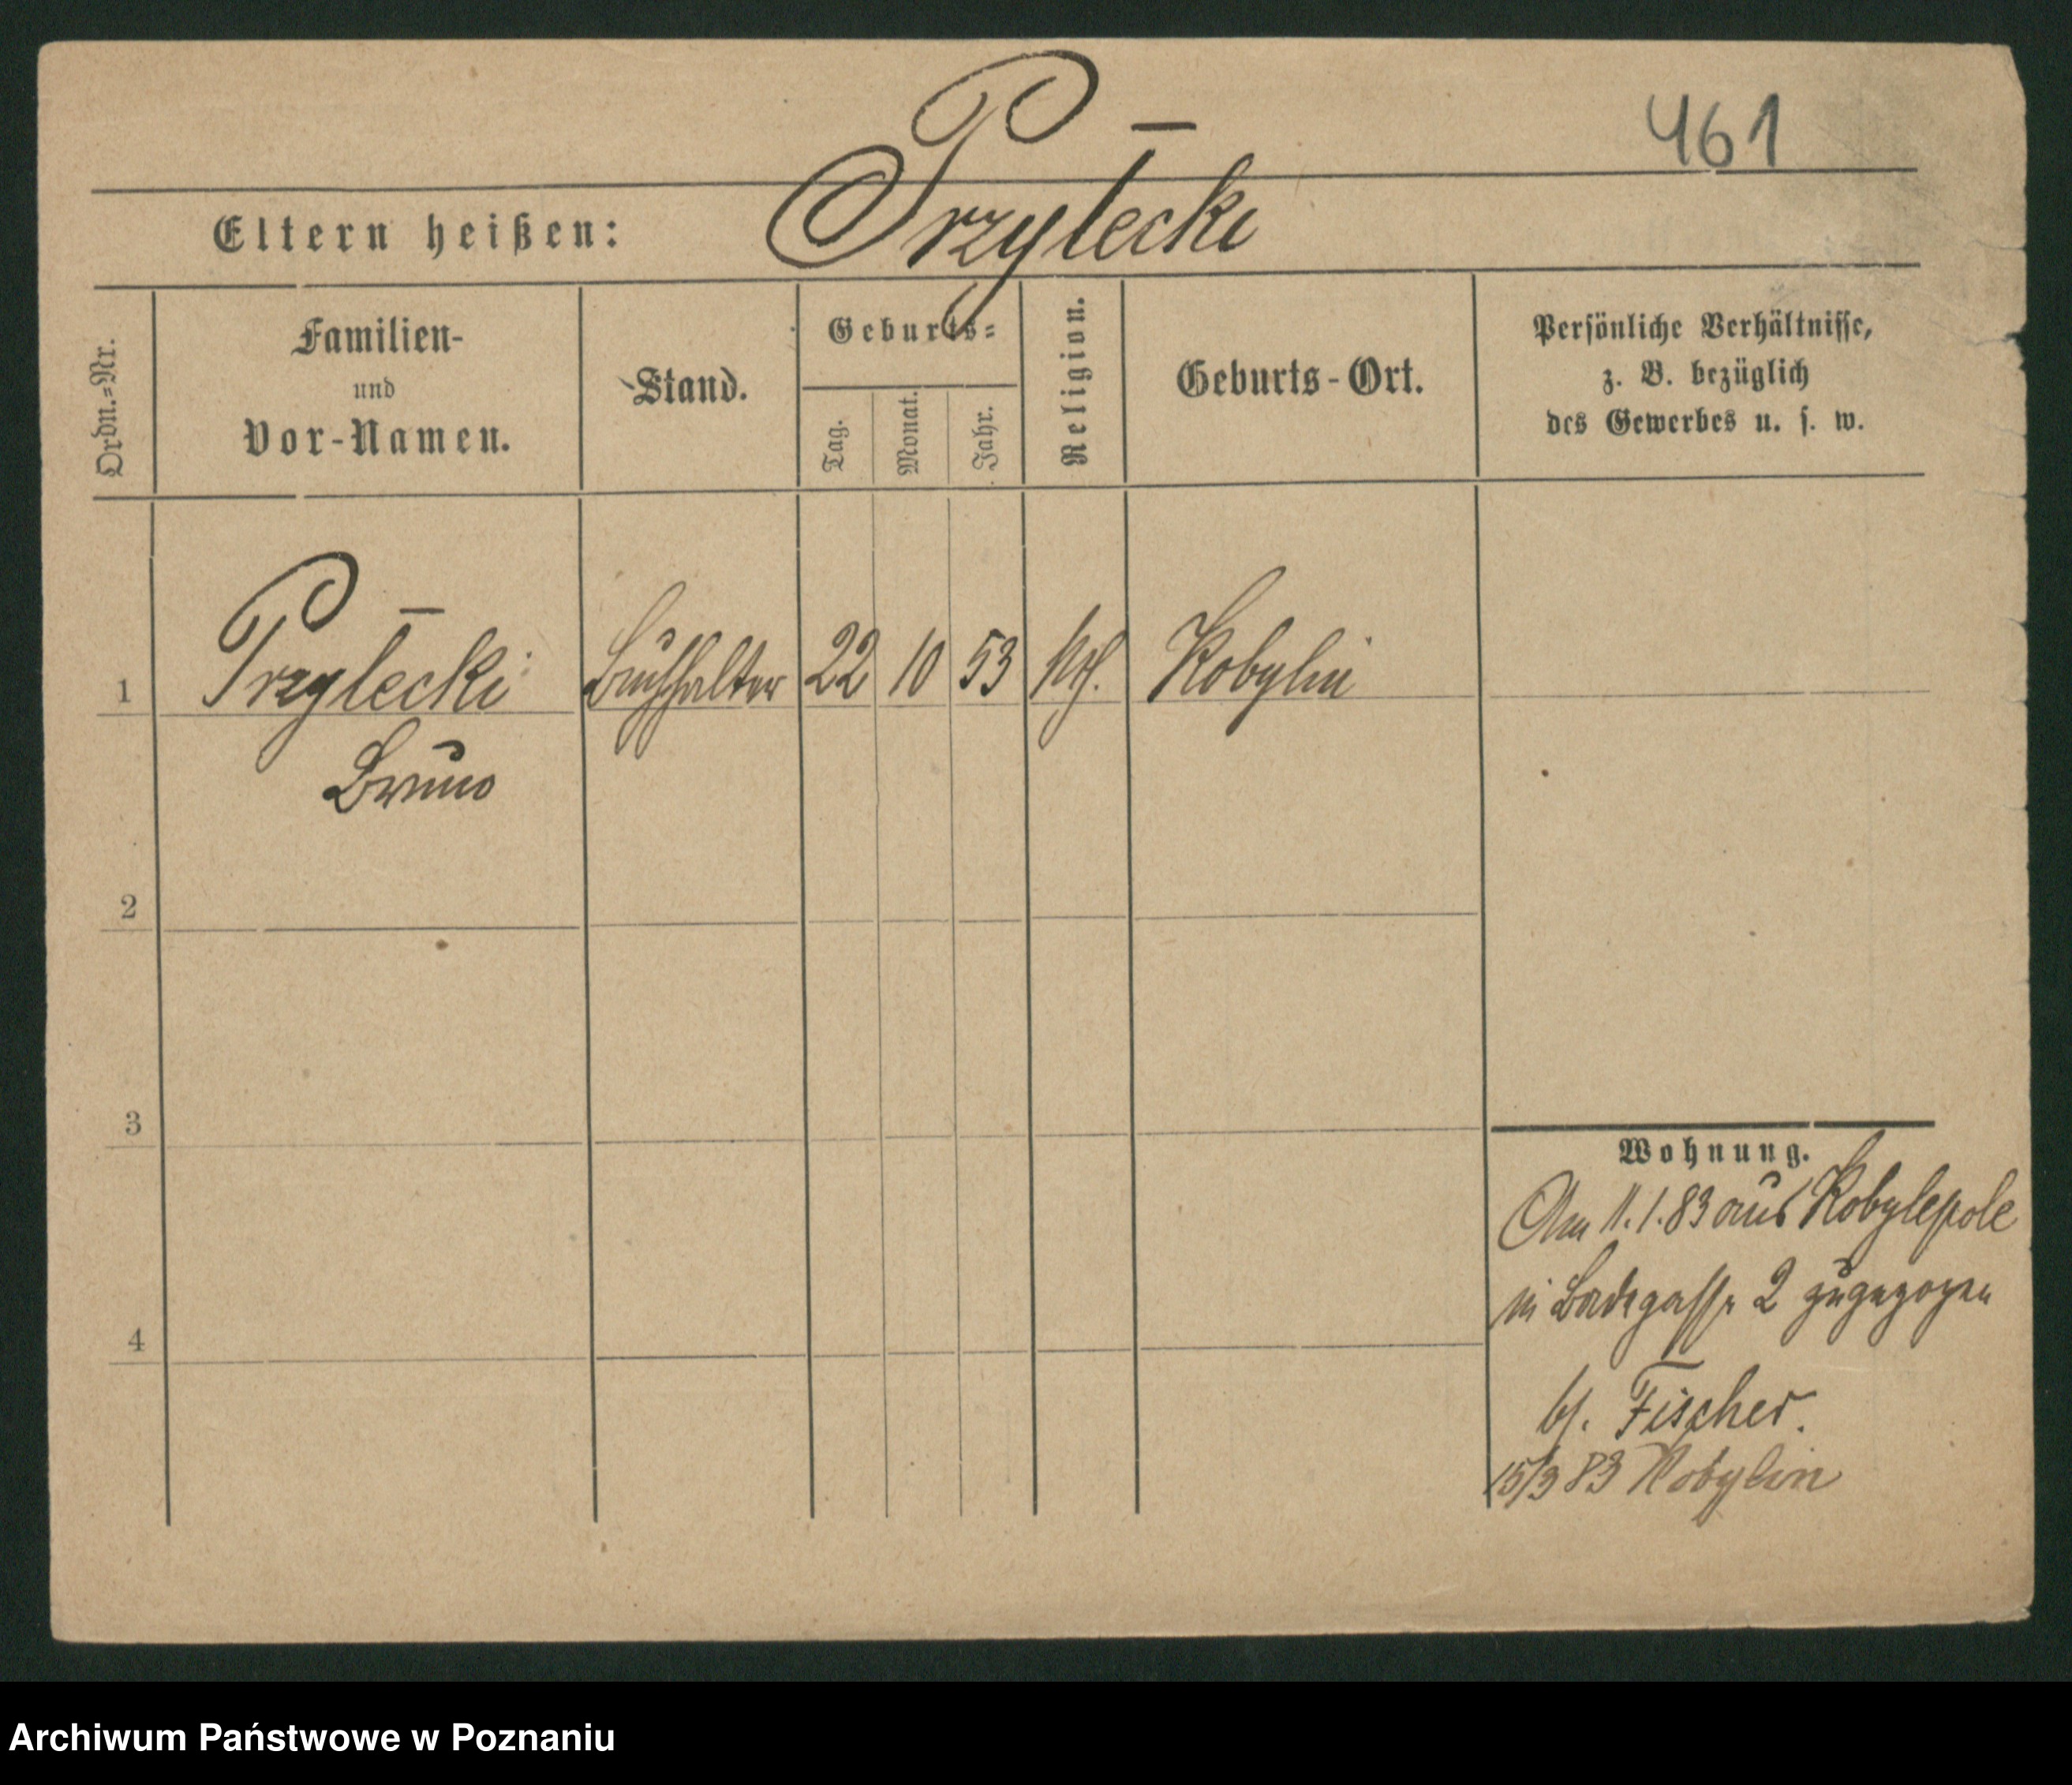 461
Przylecki
Eltern heißen:
Ordn.=Nr.
Familien-
und
Vor-Namen.
Stand.
Geburts=
Tag.
Monat.
Jahr.
Religion.
Geburts-Ort.
Persönliche Verhältnisse,
z. B. bezüglich
des Gewerbes u. s. w.
1 Przylecki Buchhalter 22 10 53 kth. Kobylin
Bruno
2
3
4
Wohnung.
Am 11.1.83 aus Kobylepole
in Badegasse 2 zugezogen
b/. Fischer.
15/3 83 Kobylin
Archiwum Państwowe w Poznaniu